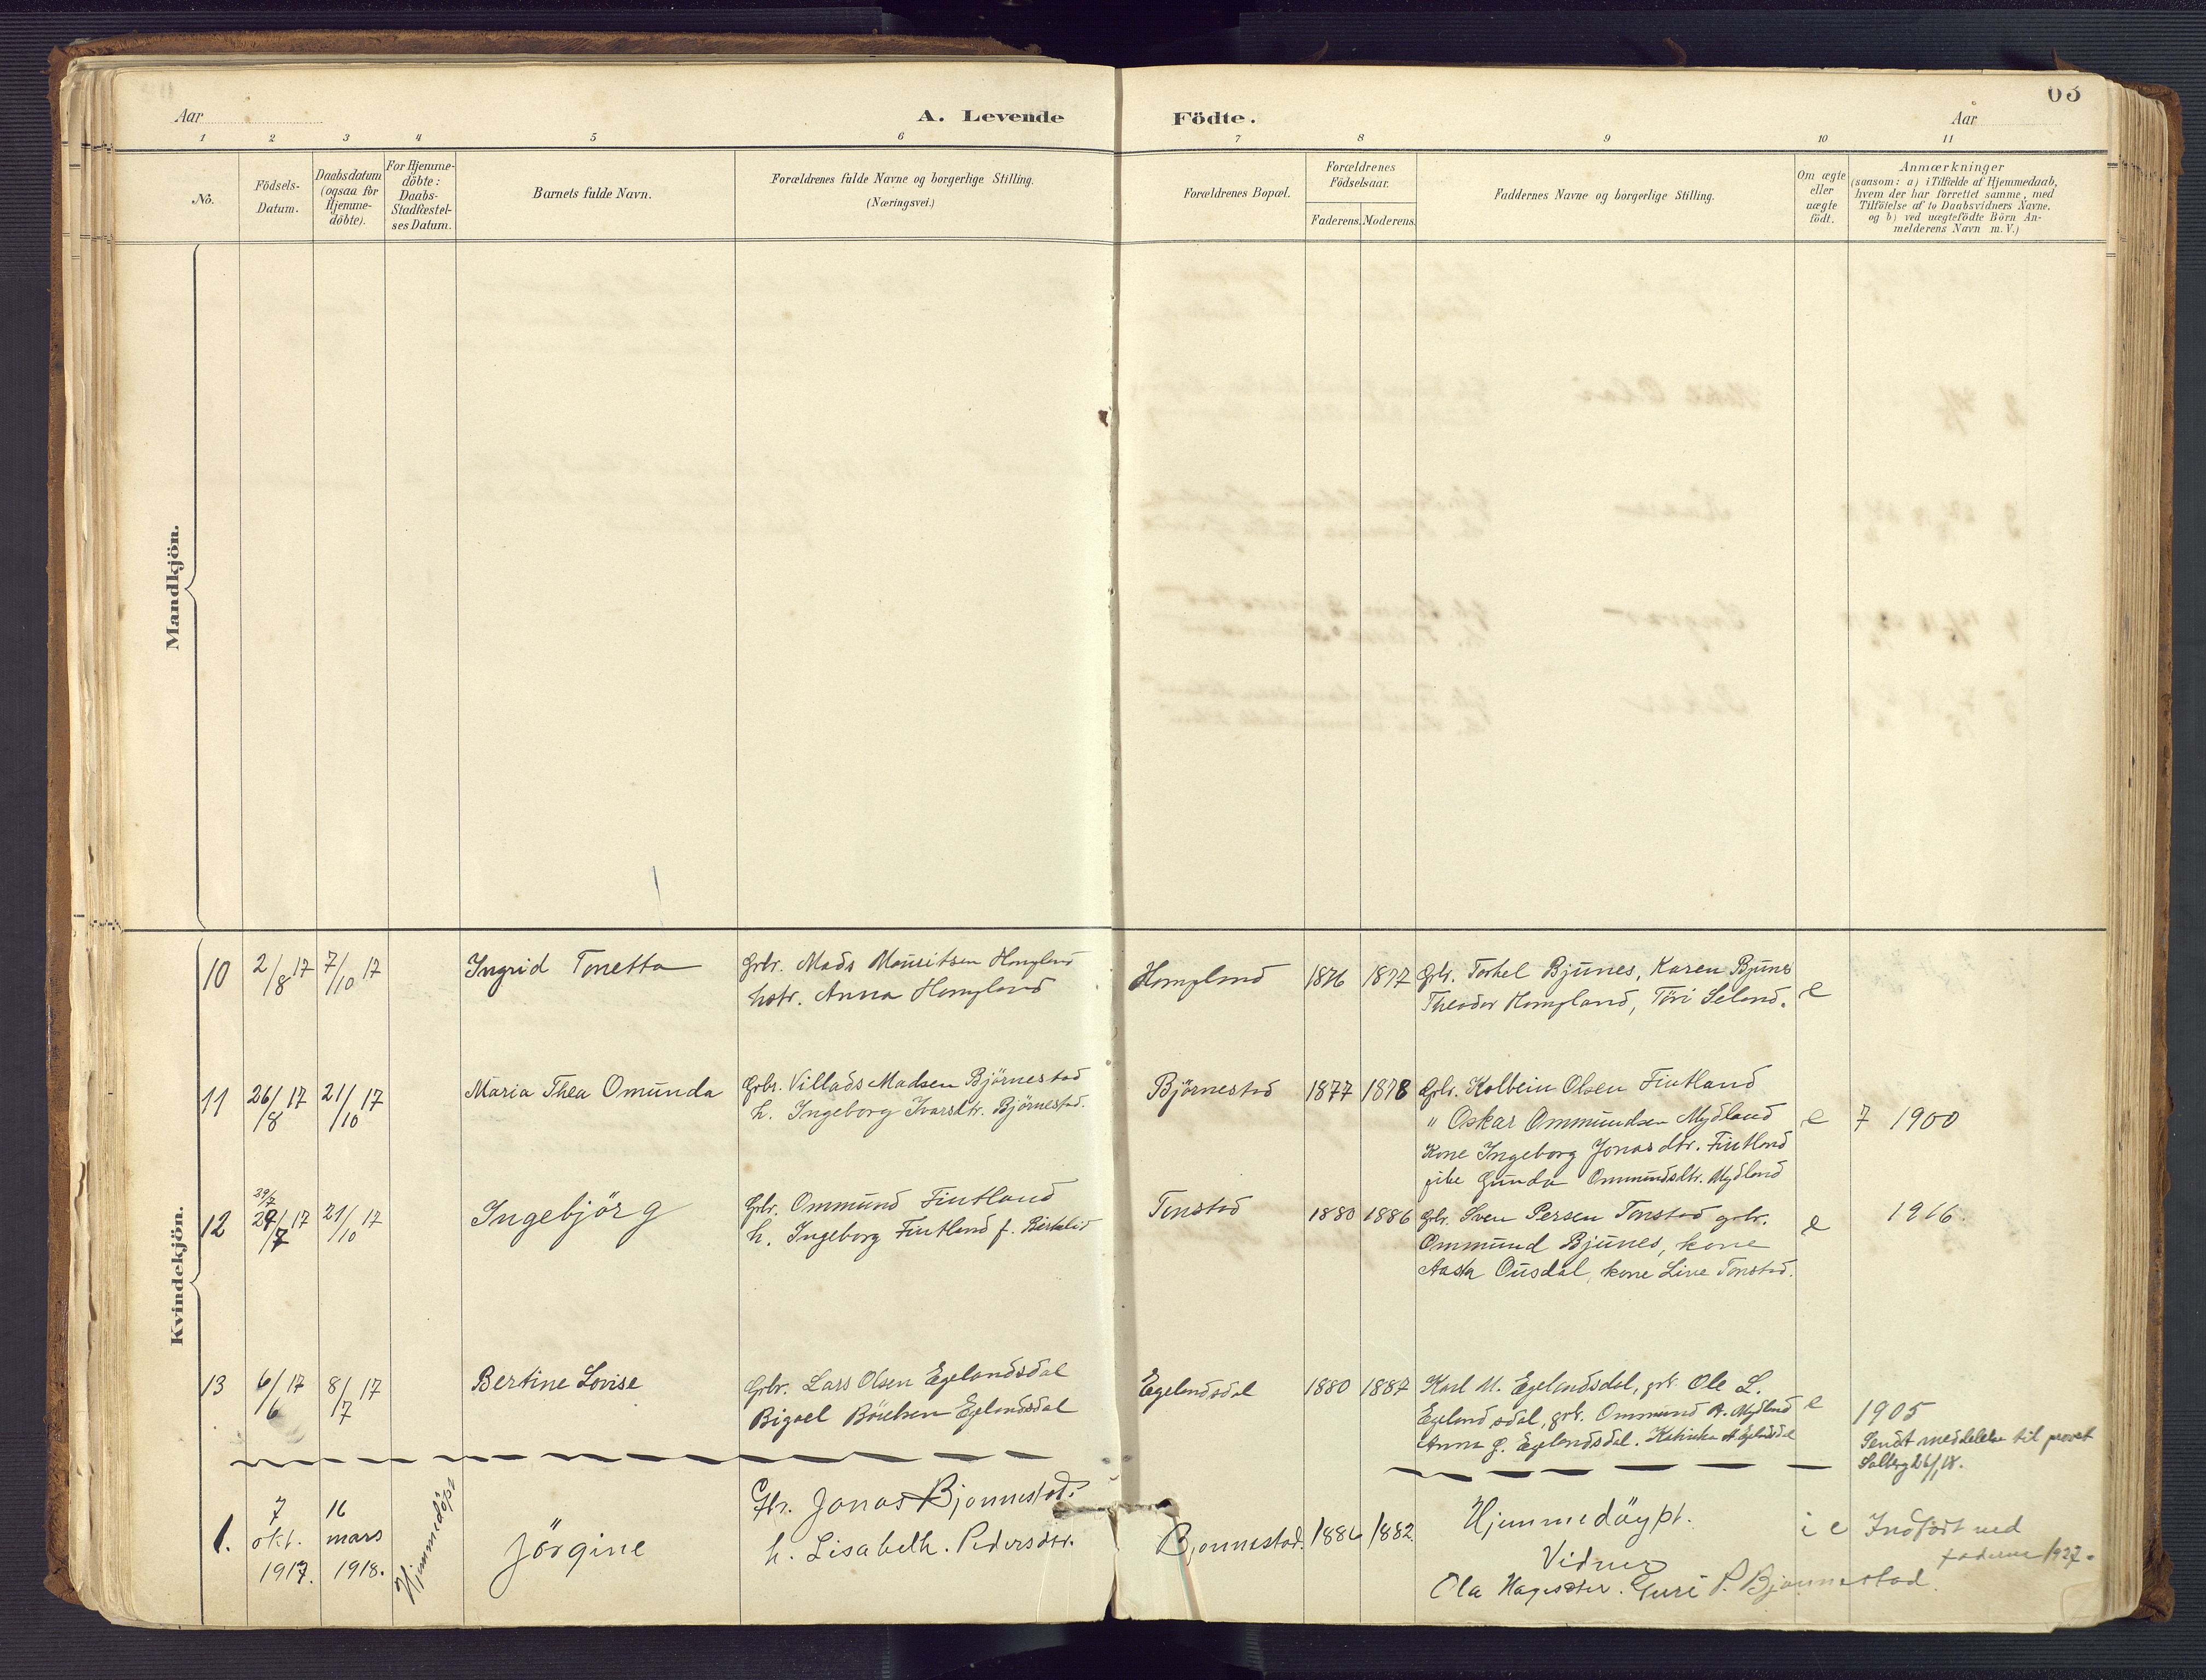 63
Aar
A. Levende Födte.
Aar
1 2 3 4 5 6 7 8 9 10 11
No.
Födsels-
Datum.
Daabsdatum
(ogsaa for
Hjemme-
döbte).
For Hjemme-
döbte:
Daabs-
Stadfæstel-
ses Datum.
Barnets fulde Navn.
Forældrenes fulde Navne og borgerlige Stilling.
(Næringsvei.)
Forældrenes Bopæl.
Forældrenes
Födselsaar.
Faderens. Moderens.
Faddernes Navne og borgerlige Stilling.
Om ægte
eller
uægte
födt.
Anmærkninger
(saasom: a) i Tilfælde af Hjemmedaab,
hvem der har forrettet samme, med
Tilföielse af to Daabsvidners Navne,
og b) ved uægtefödte Börn An-
melderens Navn m. V.)
Mandkjön.
Kvindekjön.
10 2/8 17 7/10 17
Ingrid Tonetta
Gbr. Mads Mauritsen Homgland
hstr. Anna Homgland
Homgland
1876 1877
Gbr. Torkel Bjunes, Karen Bjunes
Theodor Homgland, Töri Seland.
e
11 26/8 17 21/10 17
Maria Thea Omunda
Gbr. Villads Madsen Björnestad
h. Ingeborg Ivarsdtr. Björnestad.
Björnestad
1877 1878
Gbr. Kolbein Olsen Fintland
" Oskar Ommundsen Mydland
Kone Ingeborg Jonasdtr. Fintland
pike Gunda Ommundsdtr. Mydland
e
7 1900
12 29/7 29/7 17 21/10 17
Ingebjörg
Gbr. Ommund Fintland
h. Ingeborg Fintland f. Birkeland
Tonstad
1880 1886
Gbr. Sven Persen Tonstad gbr.
Ommund Bjunes, kone
Aasta Ousdal, kone Line Tonstad.
e
1916.
13 6/6 17 8/7 17
Bertine Lovise
Gbr. Lars Olsen Egelandsdal
Bigael Egelandsdal
Egelandsdal
1880 1887
Karl M. Egelandsdal, gbr. Ole L.
Egelandsdal, gbr. Ommund A. Mydland
Anna G. Egelandsdal. Katinka A Egelandsdal
e
1905
Sendt meddelelse til provst
1.
7
okt.
1917.
16
mars
1918.
Hjemmedöpt
Jörgine
Gbr. Jonas Bjonnestad.
h. Lisabeth. Pedersdtr.
Bjonnestad.
1886 1882.
Hjemmedöypt.
Vidner
Ola Hagesæter. Guri P. Bjonnestad.
i e
Indfört ved
faderen 1927.